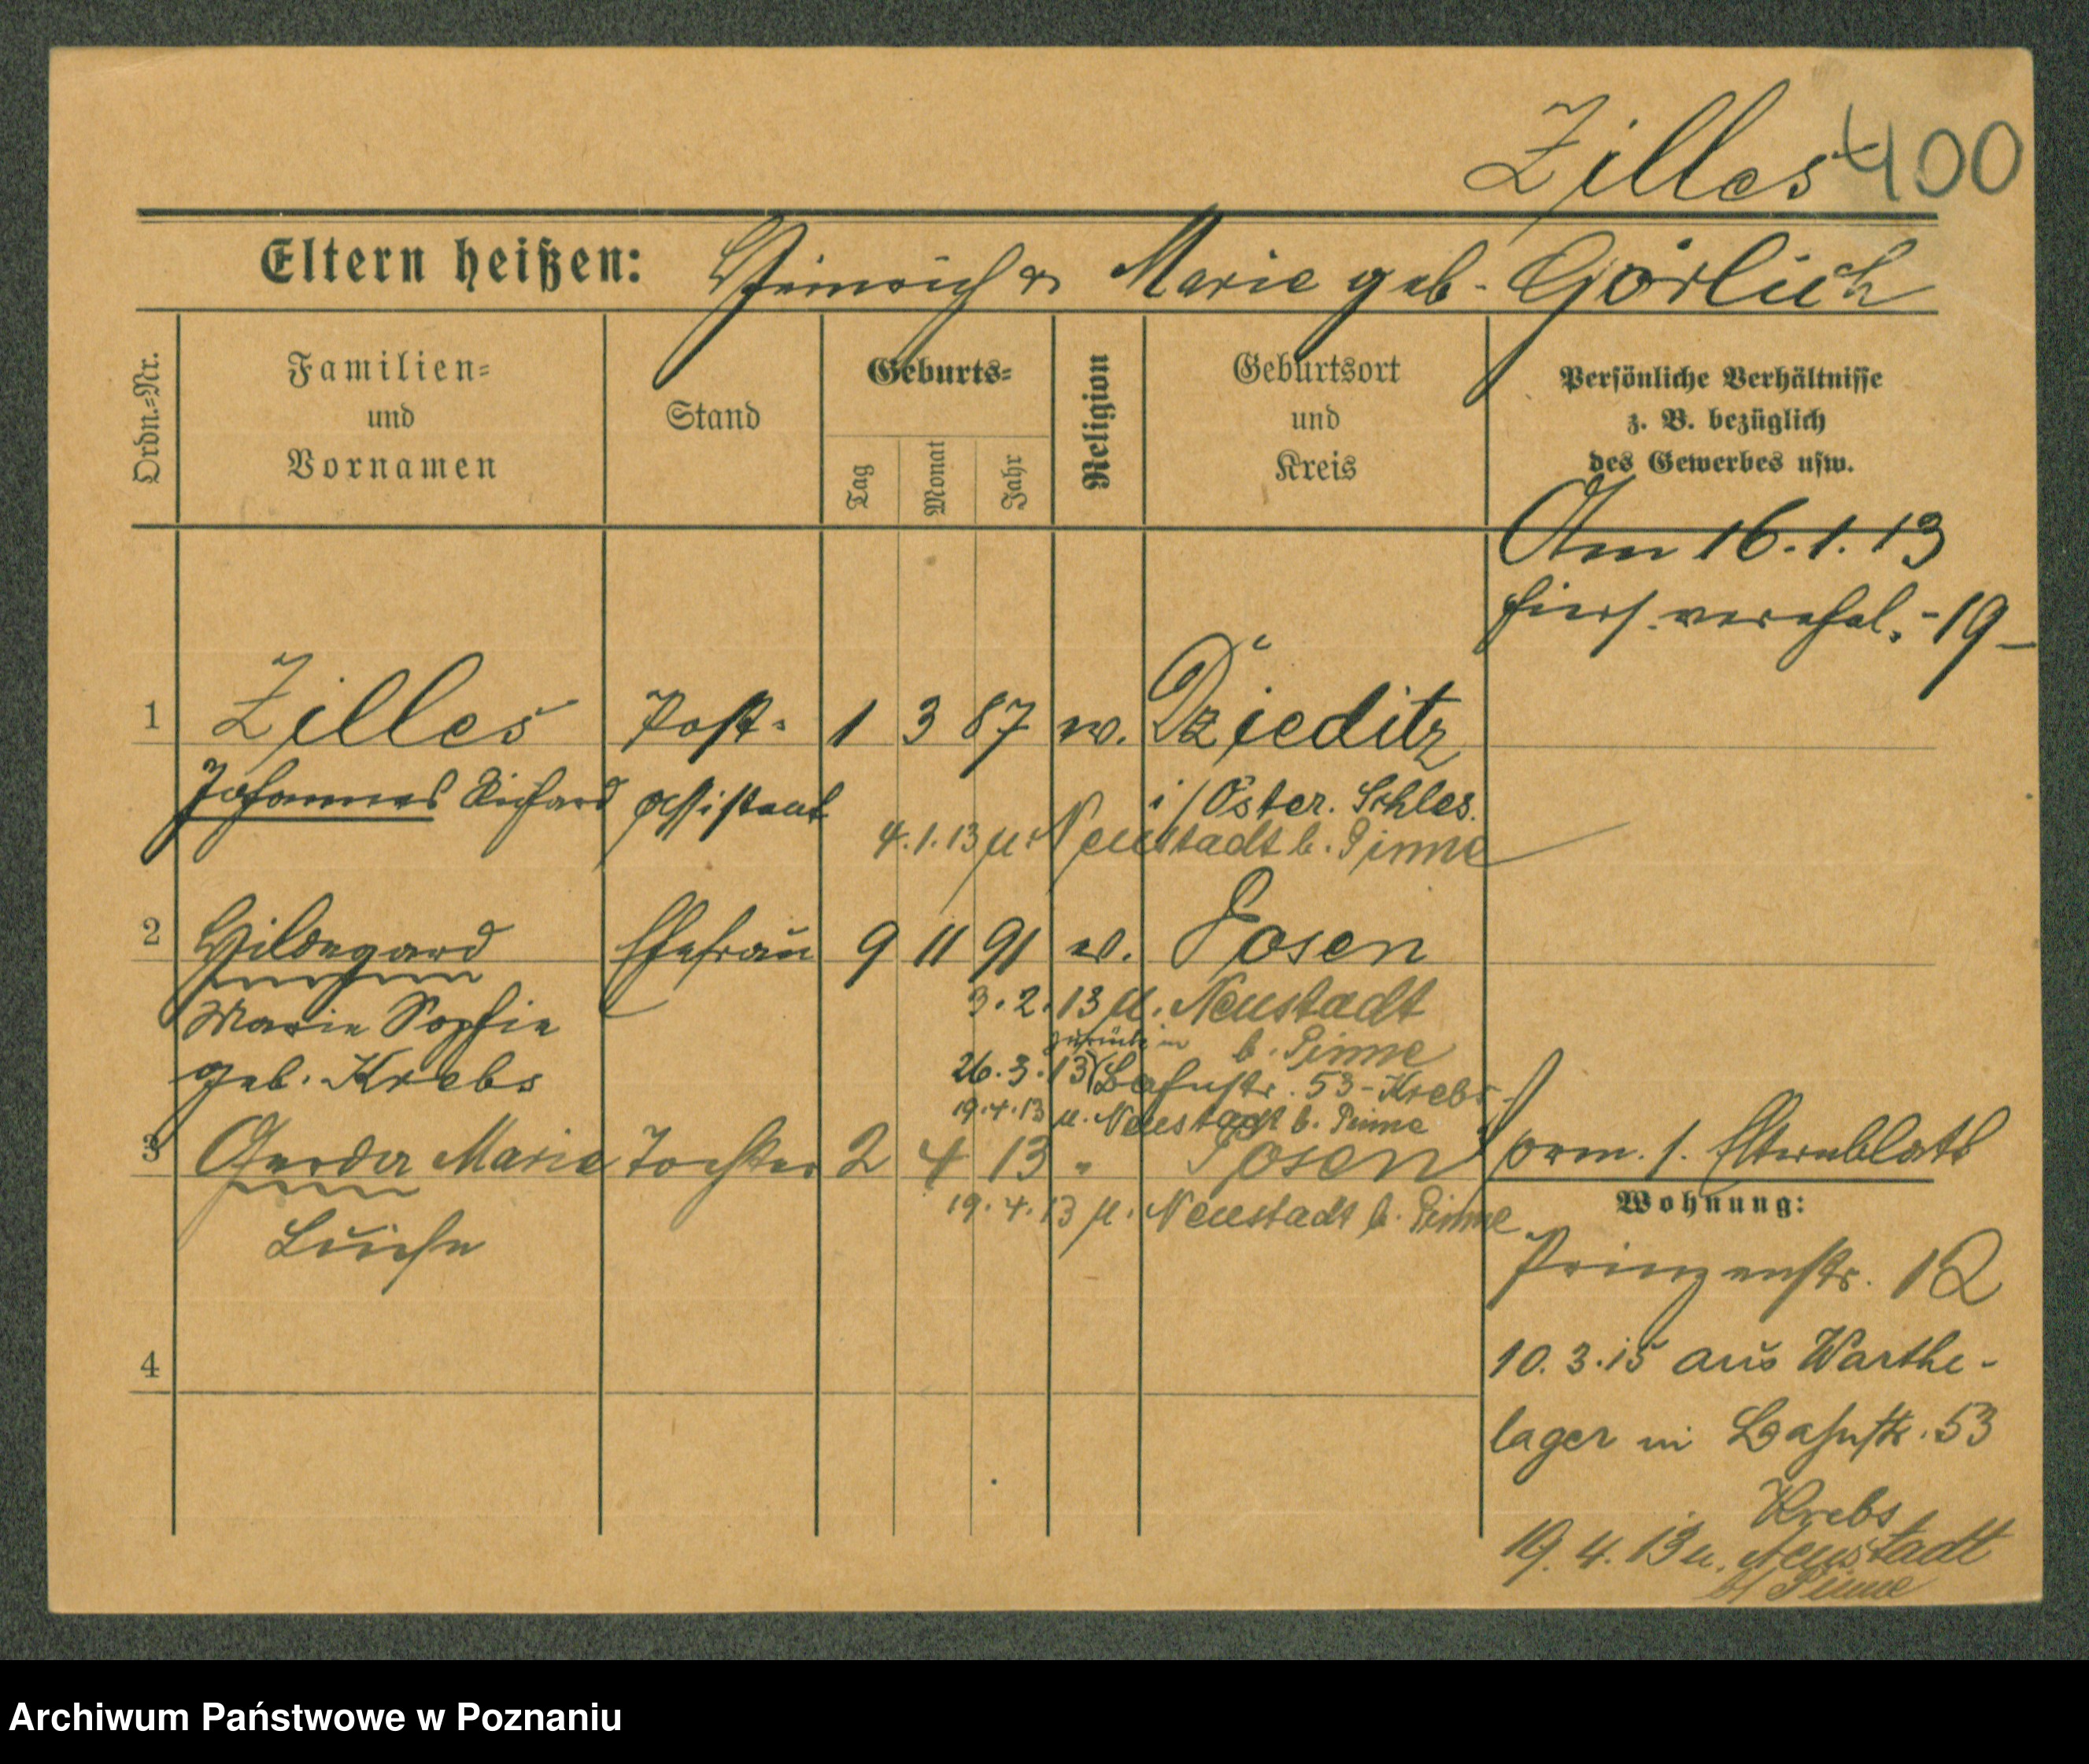 Zilles 400
Eltern heißen: Heinrich u Marie geb. Görlich
Ordn.=Nr.
Familien=
und
Vornamen
Stand
Geburts=
Tag
Monat
Jahr
Religion
Geburtsort
und
Kreis
Persönliche Verhältnisse
z. B. bezüglich
des Gewerbes usw.
Am 16.1.13
hiers. verehel. -19-
1 Zilles Post- 1 3 87 Dzieditz
Johannes Richard assistent i/Öster. Schles.
4.1.13 u. Neustadt b. Pinne
2 Hildegard Ehefrau 9 11 91 Posen
Marie Sophie
geb. Krebs
3.2.13 u. Neustadt
b. Pinne
zurück in
26.3.13 Bahnstr. 53 - Krebs -
19.4.13 u. Neustadt b. Pinne
3 Gerda Marie Tochter 2 4 13 " Posen
Luise
19.4.13 u. Neustadt b. Pinne
4
1. Elternblatt
Wohnung:
Prinzenstr. 12
10.3.15 aus Warthe-
lager in Bahnstr. 53
Krebs
19.4.13 u. Neustadt
b/ Pinne
Archiwum Państwowe w Poznaniu